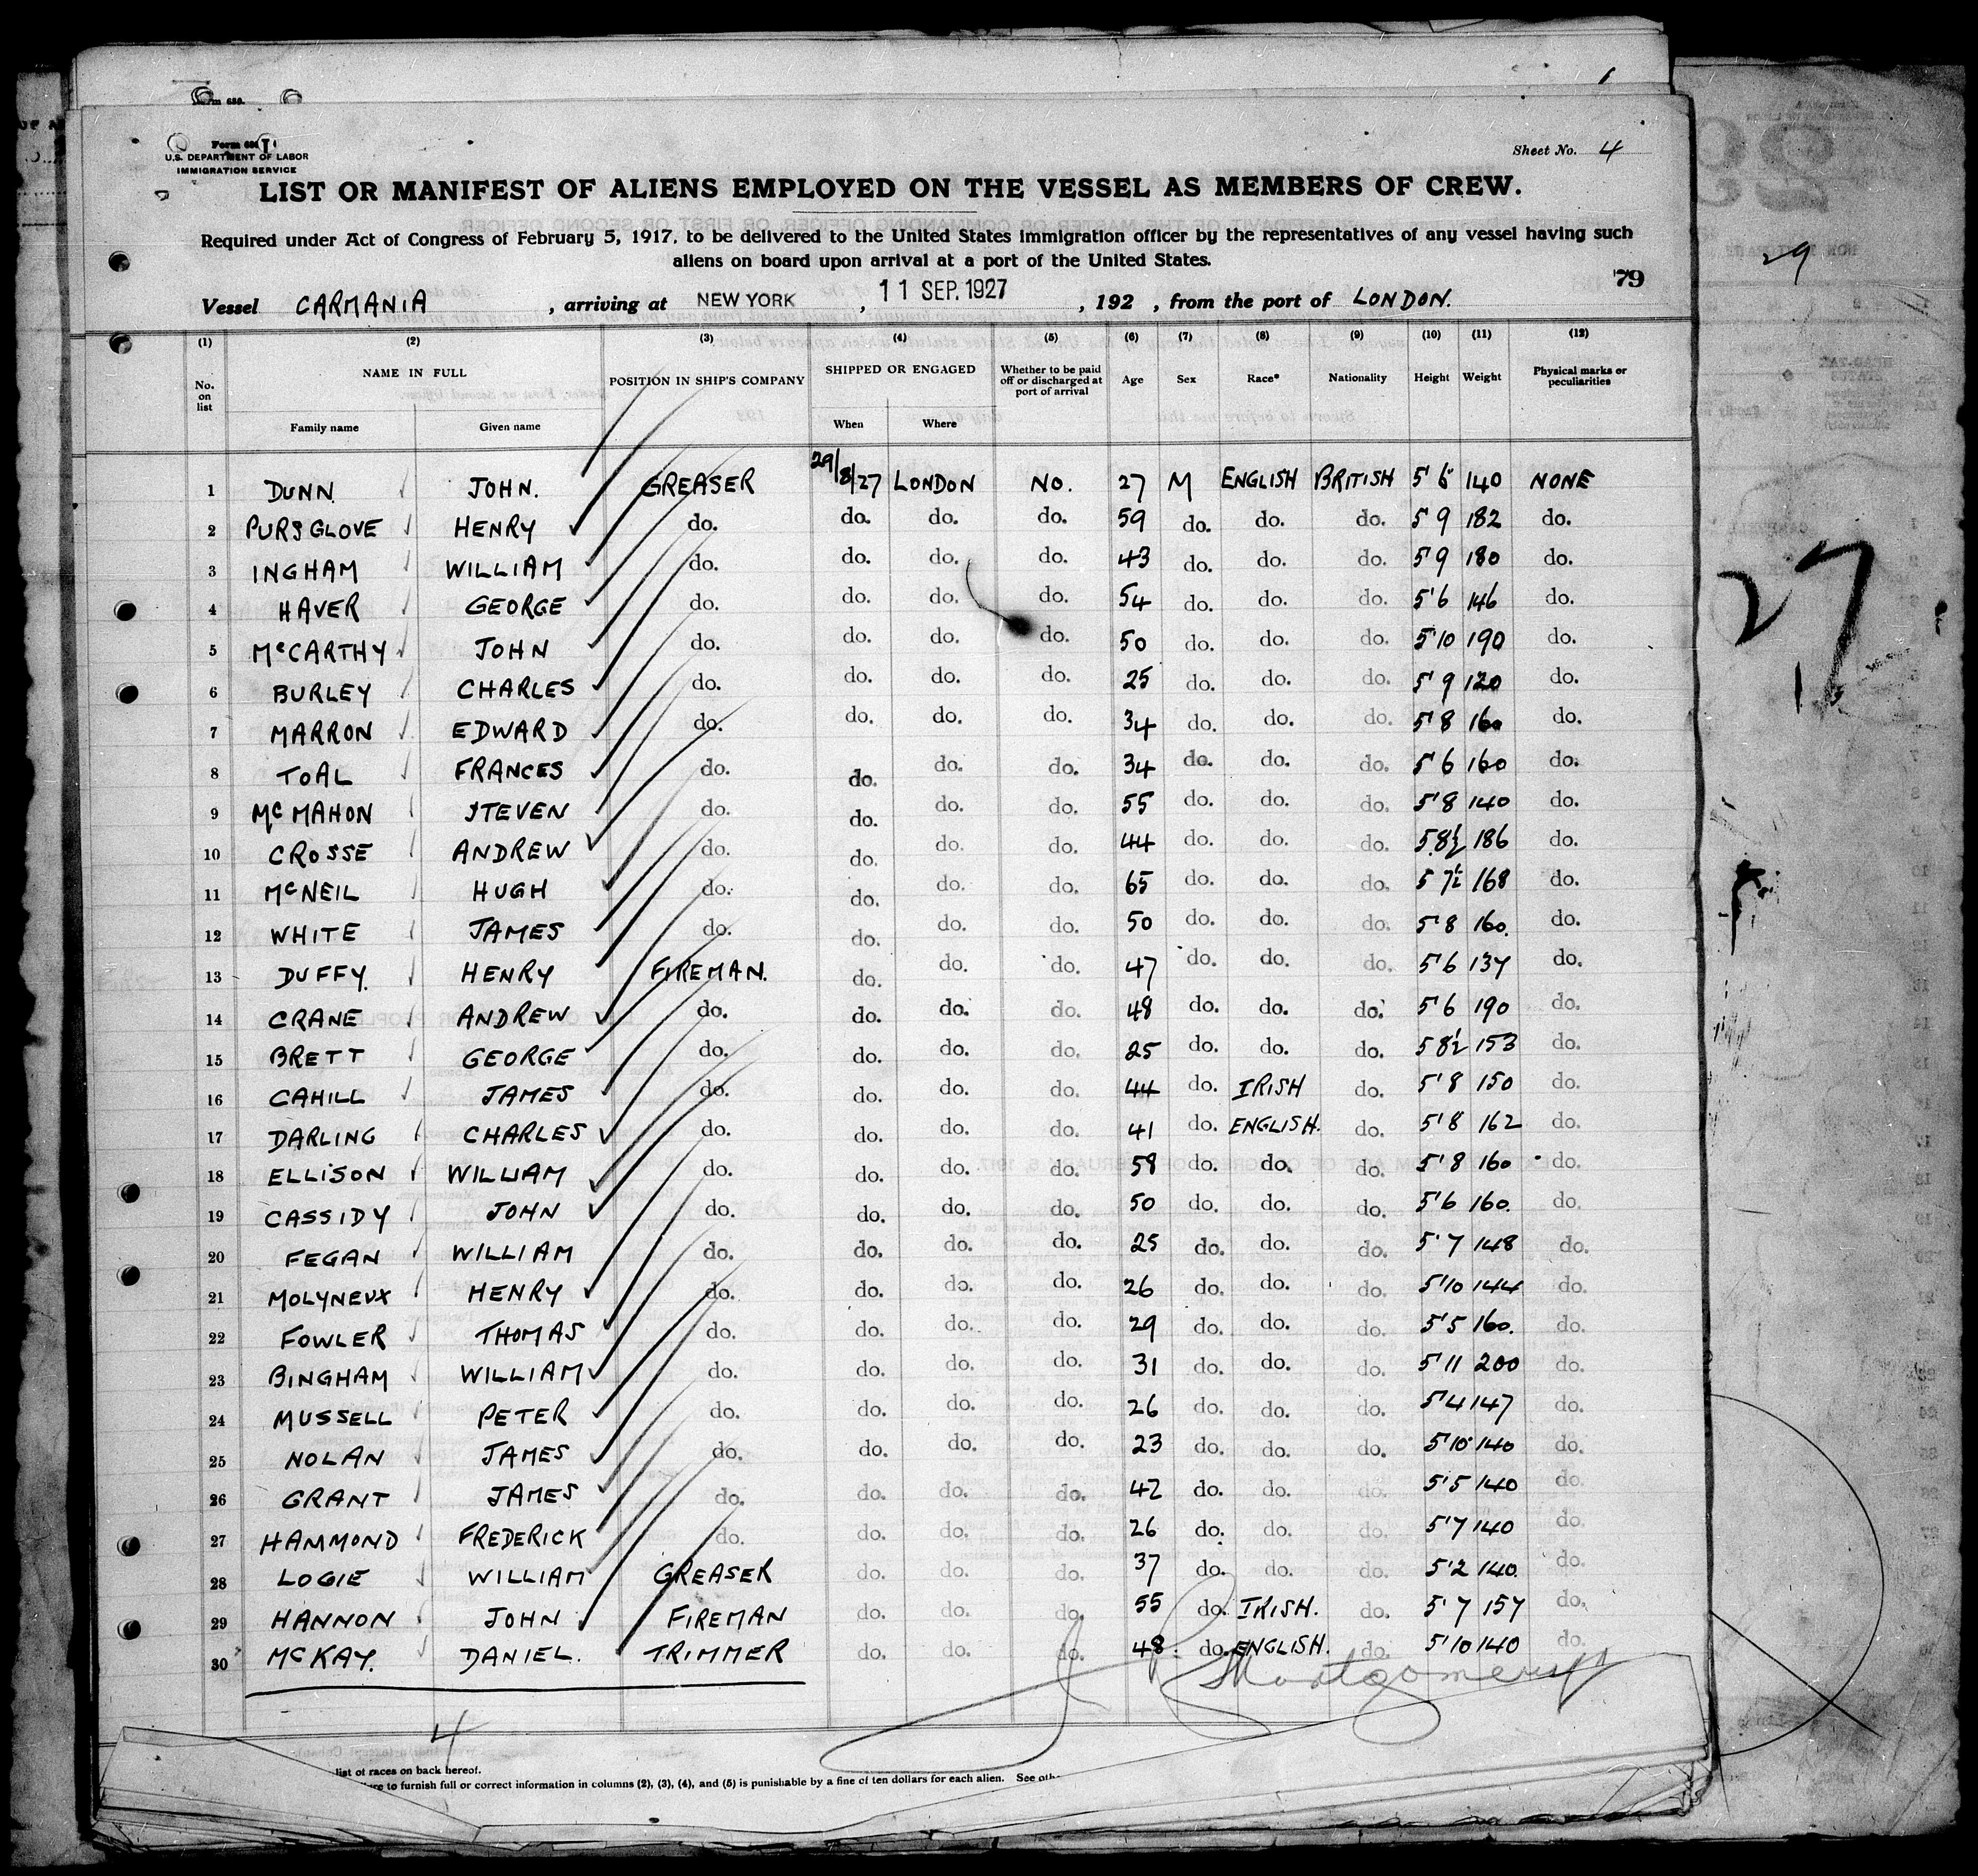 Form 680
U.S. DEPARTMENT OF LABOR
IMMIGRATION SERVICE
Sheet No. 4
LIST OR MANIFEST OF ALIENS EMPLOYED ON THE VESSEL AS MEMBERS OF CREW.
Required under Act of Congress of February 5, 1917, to be delivered to the United States immigration officer by the representatives of any vessel having such
aliens on board upon arrival at a port of the United States.
79
Vessel CARMANIA, arriving at NEW YORK, 11 SEP. 1927, 192 , from the port of LONDON.
(1) (2) (3) (4) (5) (6) (7) (8) (9) (10) (11) (12)
No. on list NAME IN FULL POSITION IN SHIP'S COMPANY SHIPPED OR ENGAGED Whether to be paid off or discharged at port of arrival Age Sex Race* Nationality Height Weight Physical marks or peculiarities
Family name Given name When Where
1 DUNN. JOHN. GREASER 29/8/27 LONDON NO. 27 M ENGLISH BRITISH 5'6 140 NONE
2 PURSGLOVE HENRY do. do. do. do. 59 do. do. do. 5'9 182 do.
3 INGHAM WILLIAM do. do. do. do. 43 do. do. do. 5'9 180 do.
4 HAVER GEORGE do. do. do. do. 54 do. do. do. 5'6 146 do.
5 McCARTHY JOHN do. do. do. do. 50 do. do. do. 5'10 190 do.
6 BURLEY CHARLES do. do. do. do. 25 do. do. do. 5'9 120 do.
7 MARRON EDWARD do. do. do. do. 34 do. do. do. 5'8 160 do.
8 TOAL FRANCES do. do. do. do. 34 do. do. do. 5'6 160 do.
9 McMAHON STEVEN do. do. do. do. 55 do. do. do. 5'8 140 do.
10 CROSSE ANDREW do. do. do. do. 44 do. do. do. 5.8½ 186 do.
11 McNEIL HUGH do. do. do. do. 65 do. do. do. 5 7½ 168 do.
12 WHITE JAMES do. do. do. do. 50 do. do. do. 5'8 160. do.
13 DUFFY. HENRY FIREMAN. do. do. do. 47 do. do. do. 5'6 137 do.
14 CRANE ANDREW do. do. do. do. 48 do. do. do. 5'6 190 do.
15 BRETT GEORGE do. do. do. do. 25 do. do. do. 5 8½ 153 do.
16 CAHILL JAMES do. do. do. do. 44 do. IRISH do. 5'8 150 do.
17 DARLING CHARLES do. do. do. do. 41 do. ENGLISH. do. 5'8 162 do.
18 ELLISON WILLIAM do. do. do. do. 58 do. do. do. 5'8 160 do.
19 CASSIDY JOHN do. do. do. do. 50 do. do. do. 5'6 160. do.
20 FEGAN WILLIAM do. do. do. do. 25 do. do. do. 5'7 148 do.
21 MOLYNEUX HENRY do. do. do. do. 26 do. do. do. 5'10 144 do.
22 FOWLER THOMAS do. do. do. do. 29 do. do. do. 5'5 160. do.
23 BINGHAM WILLIAM do. do. do. do. 31 do. do. do. 5'11 200 do.
24 MUSSELL PETER do. do. do. do. 26 do. do. do. 5'4 147 do.
25 NOLAN JAMES do. do. do. do. 23 do. do. do. 5'10 140 do.
26 GRANT JAMES do. do. do. do. 42 do. do. do. 5'5 140 do.
27 HAMMOND FREDERICK do. do. do. do. 26 do. do. do. 5'7 140 do.
28 LOGIE WILLIAM GREASER do. do. do. 37 do. do. do. 5'2 140. do.
29 HANNON JOHN FIREMAN do. do. do. 55 do. IRISH. do. 5'7 157 do.
30 McKAY. DANIEL. TRIMMER do. do. do. 48 do. ENGLISH. do. 5'10 140 do.
Montgomery
4
list of races on back hereof.
to furnish full or correct information in columns (2), (3), (4), and (5) is punishable by a fine of ten dollars for each alien. See
29
27